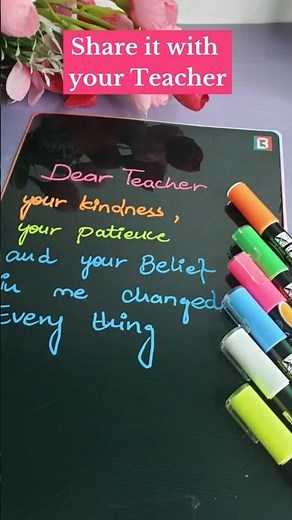 Share it with
your Teacher
Dear Teacher
your kindness,
your patience
and your Belief
in me changed
Every thing